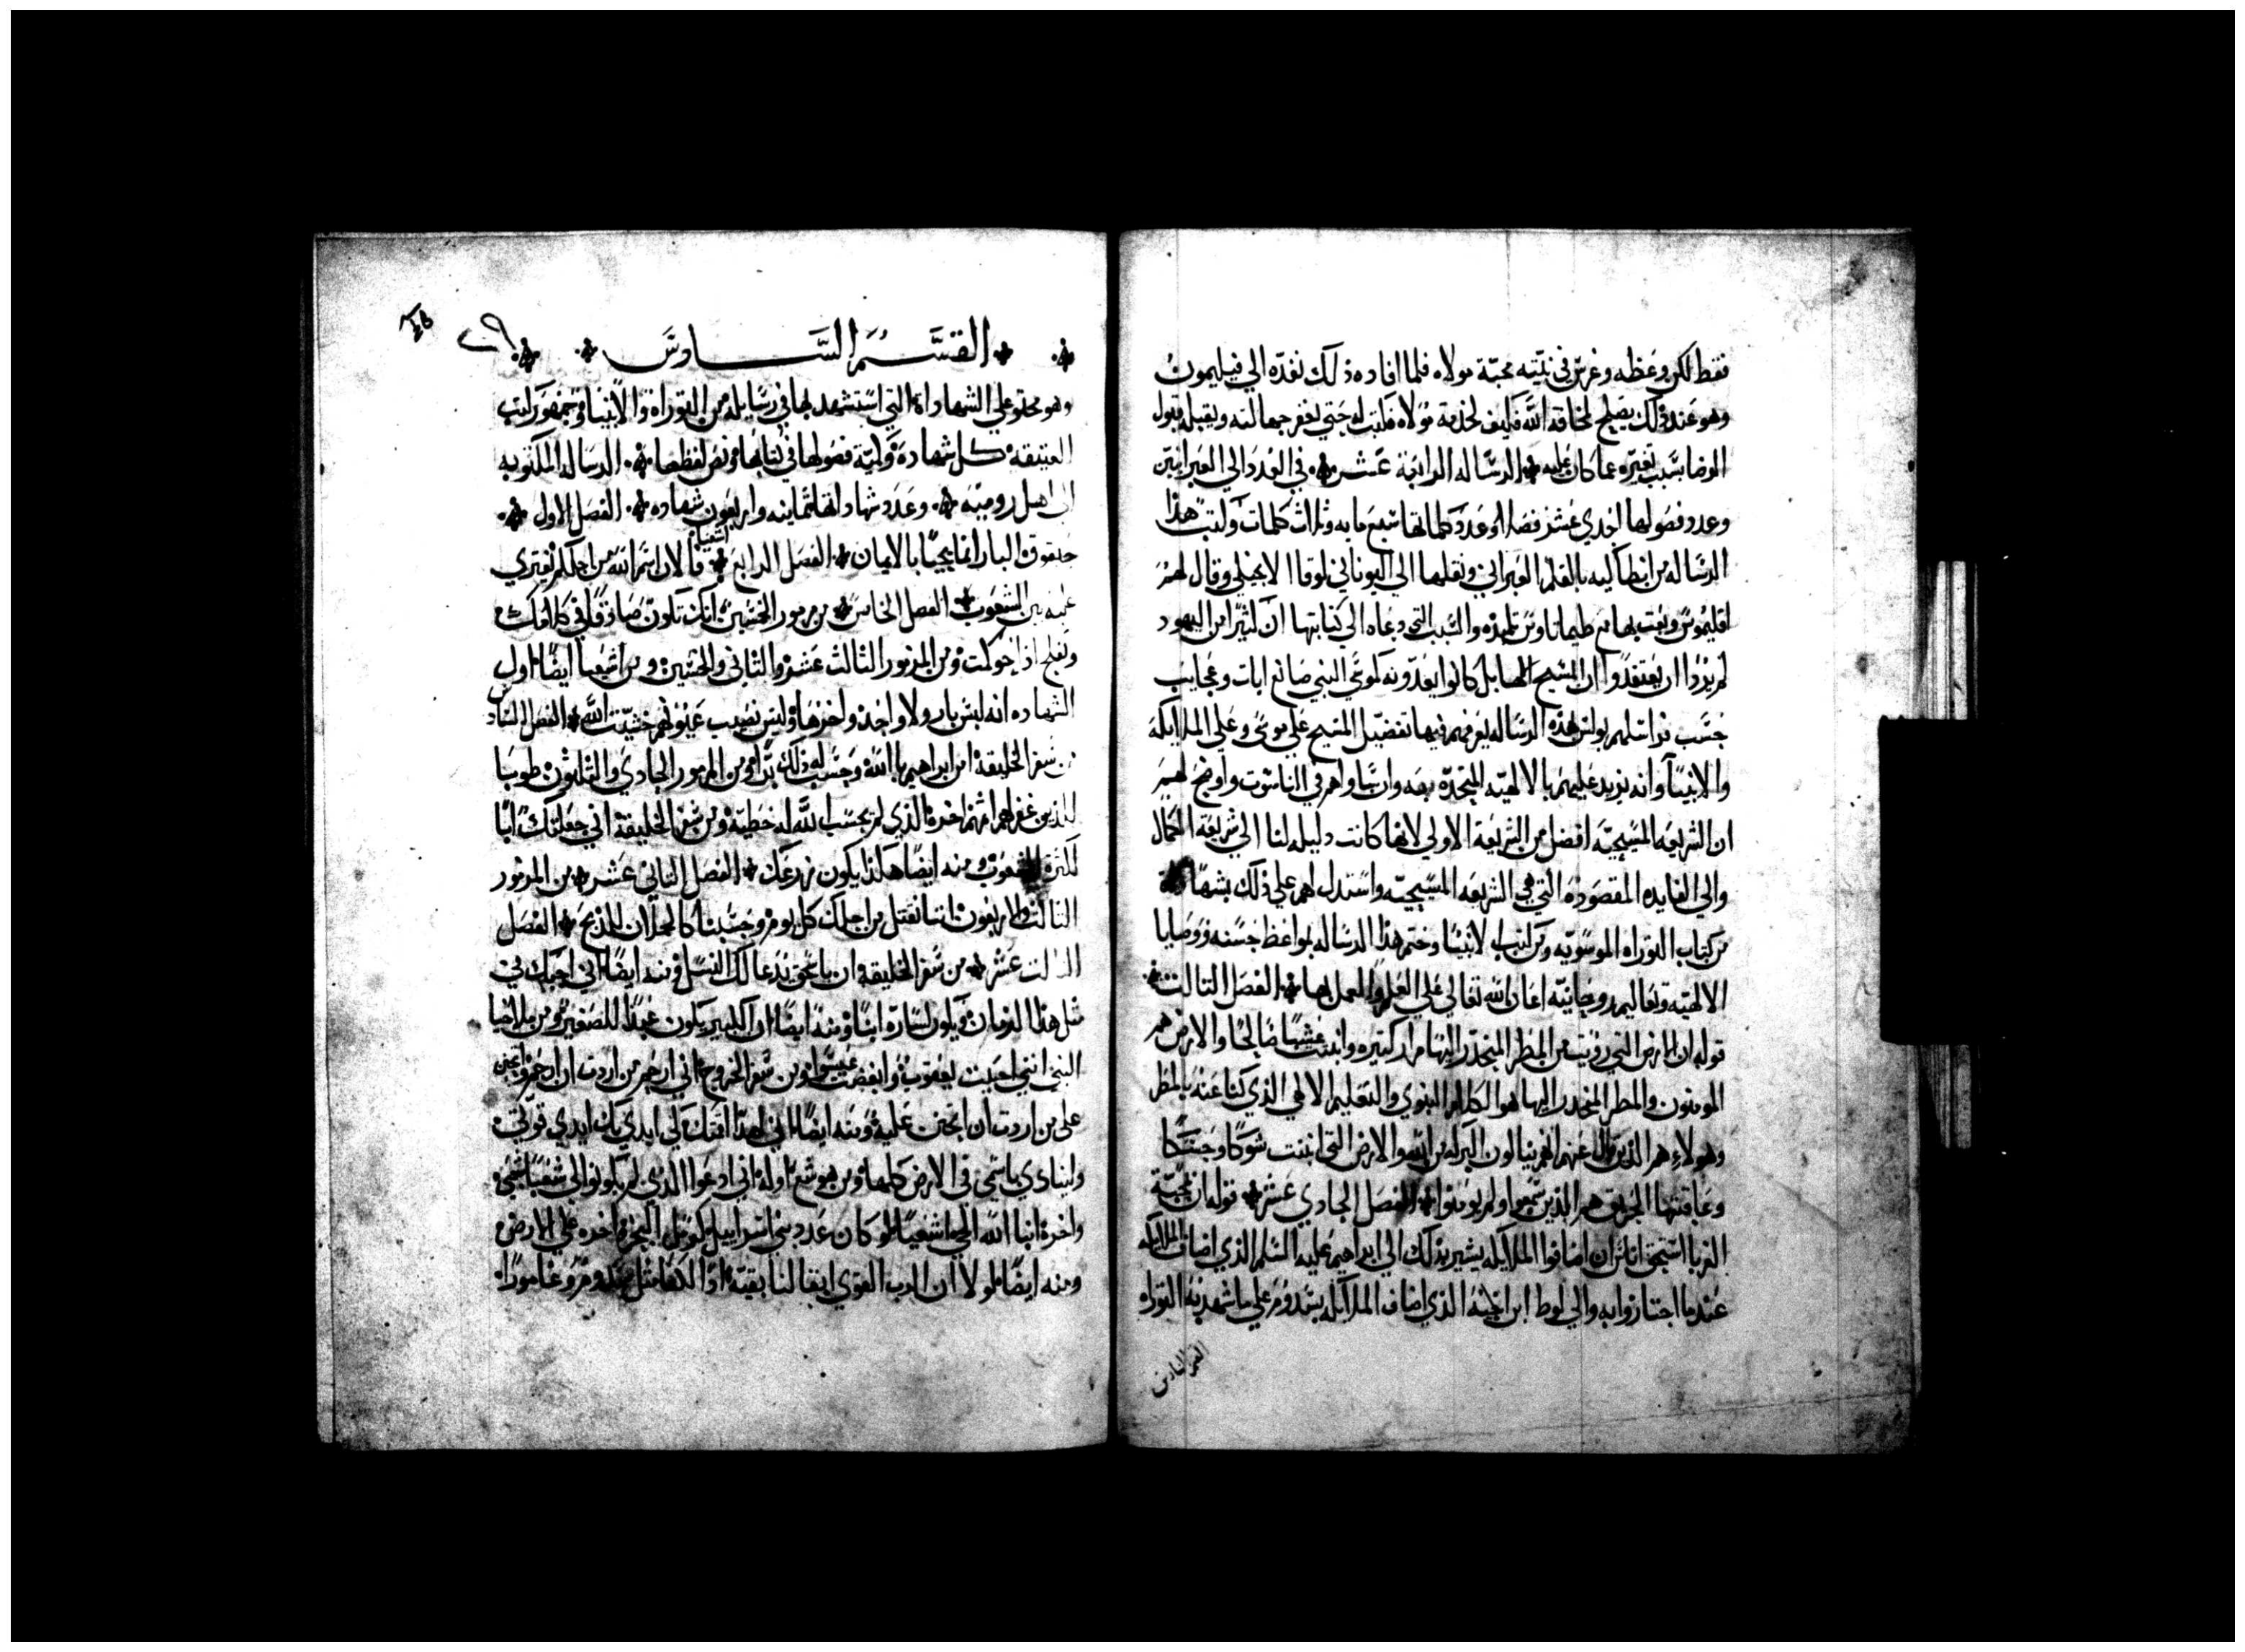 فقط لكن وعظه وغرس في نيته محبة مولاه فلما افاده ذلك نفده الي فيليمون
وهو عند ذلك يصلح لخدمة الله فكيف لخدمة مولاه فكتب له حتي يغفر جهالته ويقبله قبول
الرضا بسبب تغيره عما كان عليه الرساله الرابعة عشر في العدد الي العبرانيين
وعدد فصولها احدي عشر فصلا وعدد كلماتها سبع مايه وثلاث كلمات وكتب هذه
الرساله من انطاكيه بالقلم العبراني ونقلها الي اليوناني لوقا الانجيلي وقال لهم
اقليموس وبعت بها مع طيماتاوس تلميذه والسبب التي دعاه الي كتابتها ان كثيرا من اليهود
لم يردوا ان يعتقدوا ان المسيح الها بل كانوا يعدونه كموسي النبي صانع ايات وعجايب
حسب فراسلهم بولس هذه الرساله يعرفهم فيها تفضيل المسيح علي موسي وعلي الملايكه
والانبيا وانه يزيد عليهم بالالهيته المتحدة معه وان ساواهم في الناسوت واوضح لهم
ان الشريعه المسيحيه افضل من الشريعة الاولي لانها كانت دليله لنا الي شريعة الكمال
والي الفايده المقصودة التي هي الشريعه المسيحيه واستدل لهم علي ذلك بشهادة
من كتاب التوراه الموسويه ومن كتب الانبيا وختم هذه الرساله بمواعظ حسنه ووصايا
الالهيه وتعاليم روحانيه اعان الله تعالي علي العلم والعمل بها الفصل الثالث
قوله ان الارض التي رويت من المطر المنحدر اليها مرار كتيره وانبتت عشبا صالحا والارض هم
المومنون والمطر المنحدر اليها هو الكلام النبوي والتعليم الالهي الذي كنا عنه بالمطر
وهولاء هم الذين قال عنهم انهم ينالون البركه من الله والارض التي انبتت شوكا وحسكا
وعاقبتها الحريق هم الذين سمعوا ولم يومنوا الفصل الحادي عشر قوله ان محبة
الغربا استحق اناس ان اضافوا الملايكه يشير بذلك الي ابراهيم عليه السلم الذي اضاف الملايكه
عندما اجتازوا به والي لوط ابن اخيه الذي اضاف الملايكه بسدوم علي ما شهد به التوراه
القسم السادس
القسم السادس
وهو محتو علي الشهاداة التي استشهد بها في رسايله من التوراة والانبيا وجمهور كتب
العتيقة كل شهادة وكمية فصولها في كتابها ونص لفظها الرساله المكتوبه
الي اهل روميه وعدد شهاداتها ثمانيه واربعون شهاده الفصل الاول
حبقوق البار انما يحيا بالايمان الفصل الرابع اشعيا قالان اسم الله من اجلكم يفتري
عليه بين الشعوب الفصل الخامس من مزمور الخمسين انك تكون صادقا في كلامك
وتفلج اذا حوكمت ومن المزمور الثالث عشر والثاني والخمسين ومن اشعيا ايضا اول
الشهاده انه ليس بار ولا واحد واخرها وليس نصيب عيونهم خشيت الله الفصل السادس
من سفر الخليقة امن ابراهيم بالله وحسب له ذلك برا ومن المزمور الحادي والثلثون طوبا
للذين غفر لهم اثمهم اخرة الذي لم يحسب الله له خطية ومن سفر الخليقة اني جعلتك ابا
لكثرة الشعوب ومنه ايضا هكذا يكون زرعك الفصل الثاني عشر من المزمور
الثالث والاربعون اننا نقتل من اجلك كل يوم وحسبنا كالحملان للذبح الفصل
الثالث عشر من سفر الخليقة ان باسحق يدعا لك النسل ومنه ايضا اني اجيك في
مثل هذا الزمان ويكون لسارة ابنا ومنه ايضا ان الكبير يكون عبدا للصغير ومن ملاخيا
النبي انني احببت يعقوب وابغضت عيسوا ومن سفر الخروج اني ارحم من اردت ان ارحم واتحنن
علي من اردت ان اتحنن عليه ومنه ايضا اني لهذا اقمتك لكي ابدي بك ايدي قوتي
ولينادي باسمي في الارض كلها ومن هوشع اوله اني ادعوا الذي لم يكونوا لي شعبا شعبي
واخرة ابنا الله الحي اشعيا لو كان عدد بني اسراييل كرمل البحر واخره علي الارض
ومنه ايضا لو لا ان الرب القوي ابقا لنا بقية اذا لكنا مثل سدوم وغامورا